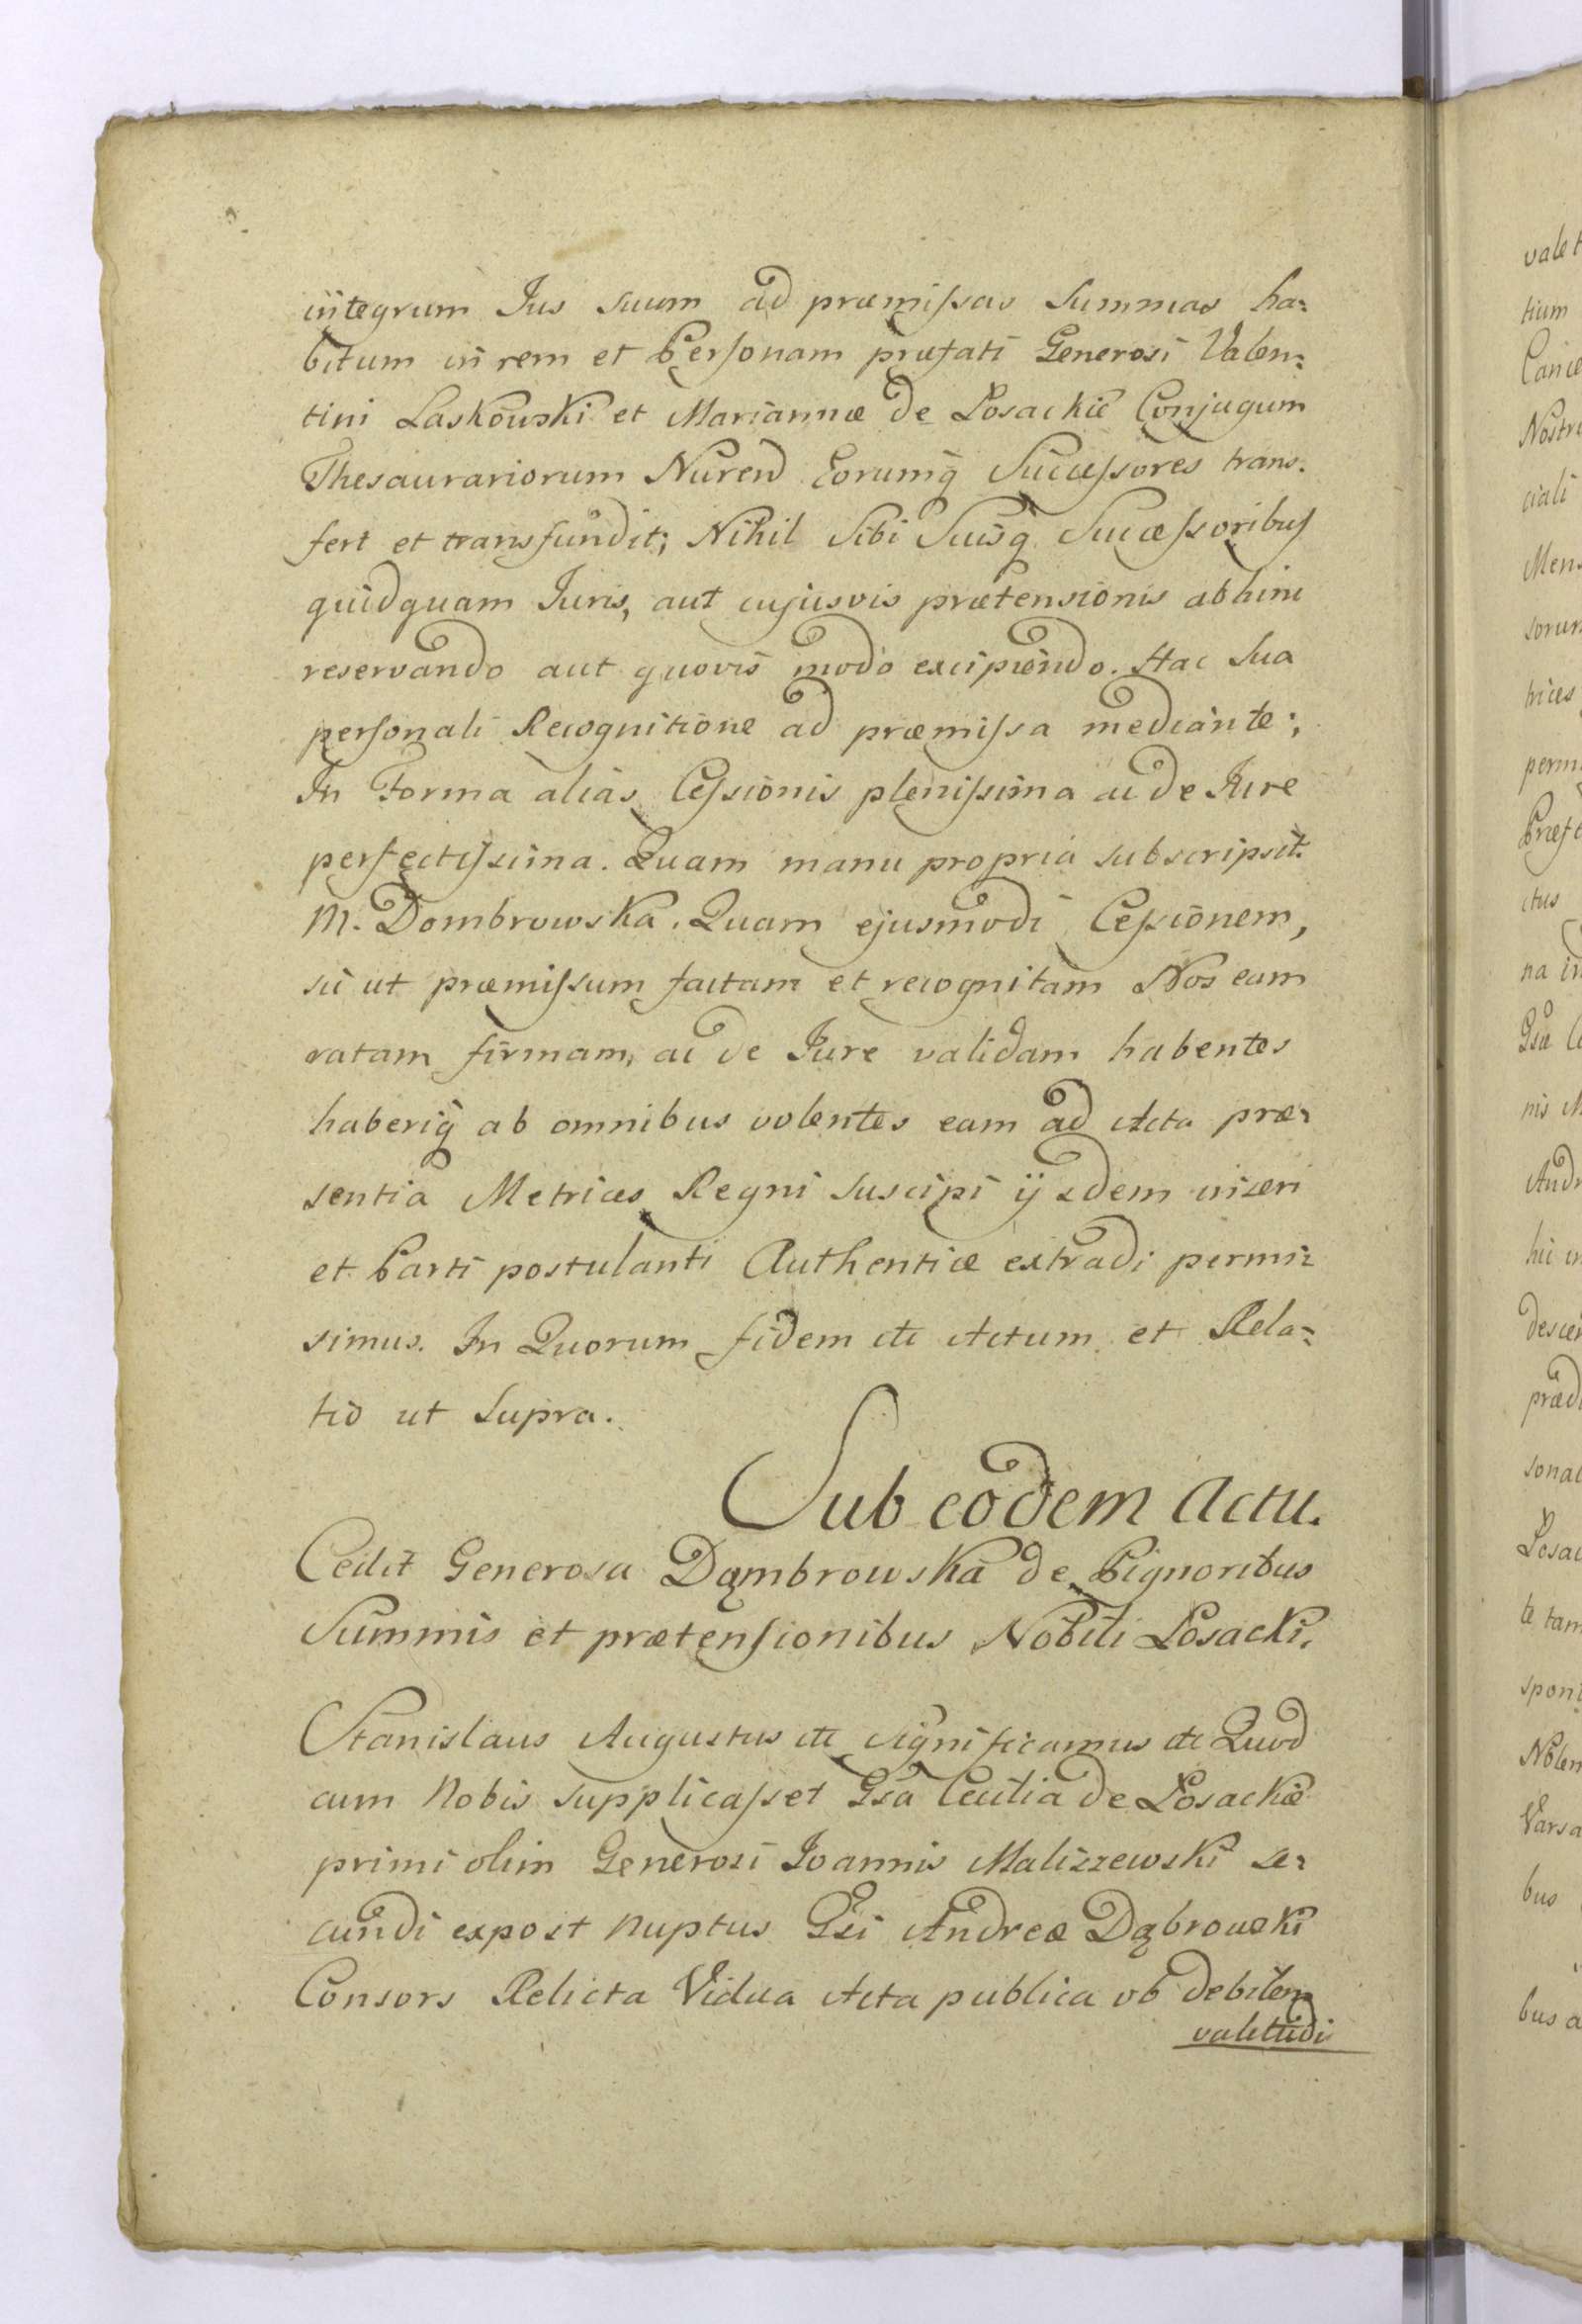 integrum Jus suum ad præmissas Summas ha=
bitum in rem et Personam præfati Generosi Valen=
tini Laskowski et Mariannæ de Łosackie Conjugum
Thesaurariorum Nuren Eorumq Successores trans.
fert et transfundit; Nihil Sibi Suisq Successoribus
quidquam Juris, aut cujusvis prætensionis abhinc
reservando aut quovis modo excipiendo. Hac Sua
personali Recognitione ad præmissa mediante;
In Forma alias Cessionis plenissima ac de Jure
perfectissima. Quam manu propria subscripsit.
M. Dombrowska. Quam ejusmodi Cessionem,
sic ut præmissum factam et recognitam Nos eam
ratam firmam, ac de Jure validam habentes
haberiq ab omnibus volentes eam ad Acta præ=
sentia Metrices Regni suscipi ijsdem inseri
et Parti postulanti Authentice extradi permi=
simus. In Quorum fidem etc Actum et Rela=
tio ut Supra.
Sub eodem Actu.
Cedit Generosa Dąmbrowska de Pignoribus
Summis et prætensionibus Nobili Łosacki.
Stanislaus Augustus etc significamus etc Quod
cum Nobis supplicasset Gsa Cecilia de Łosackie
primi olim Generosi Joannis Maliszewski se=
cundi expost nuptus Gsi Andreæ Dąbrowski
Consors Relicta Vidua Acta publica ob debilem
valetudi
vale
tium
Nostr
ciali
Mens
sorum
trices
perm
ctus
na in
nis
Andr
hic
descen
præd
sonal
Łosac
te tam
spon
Nolen
Varsa
bus
bus a